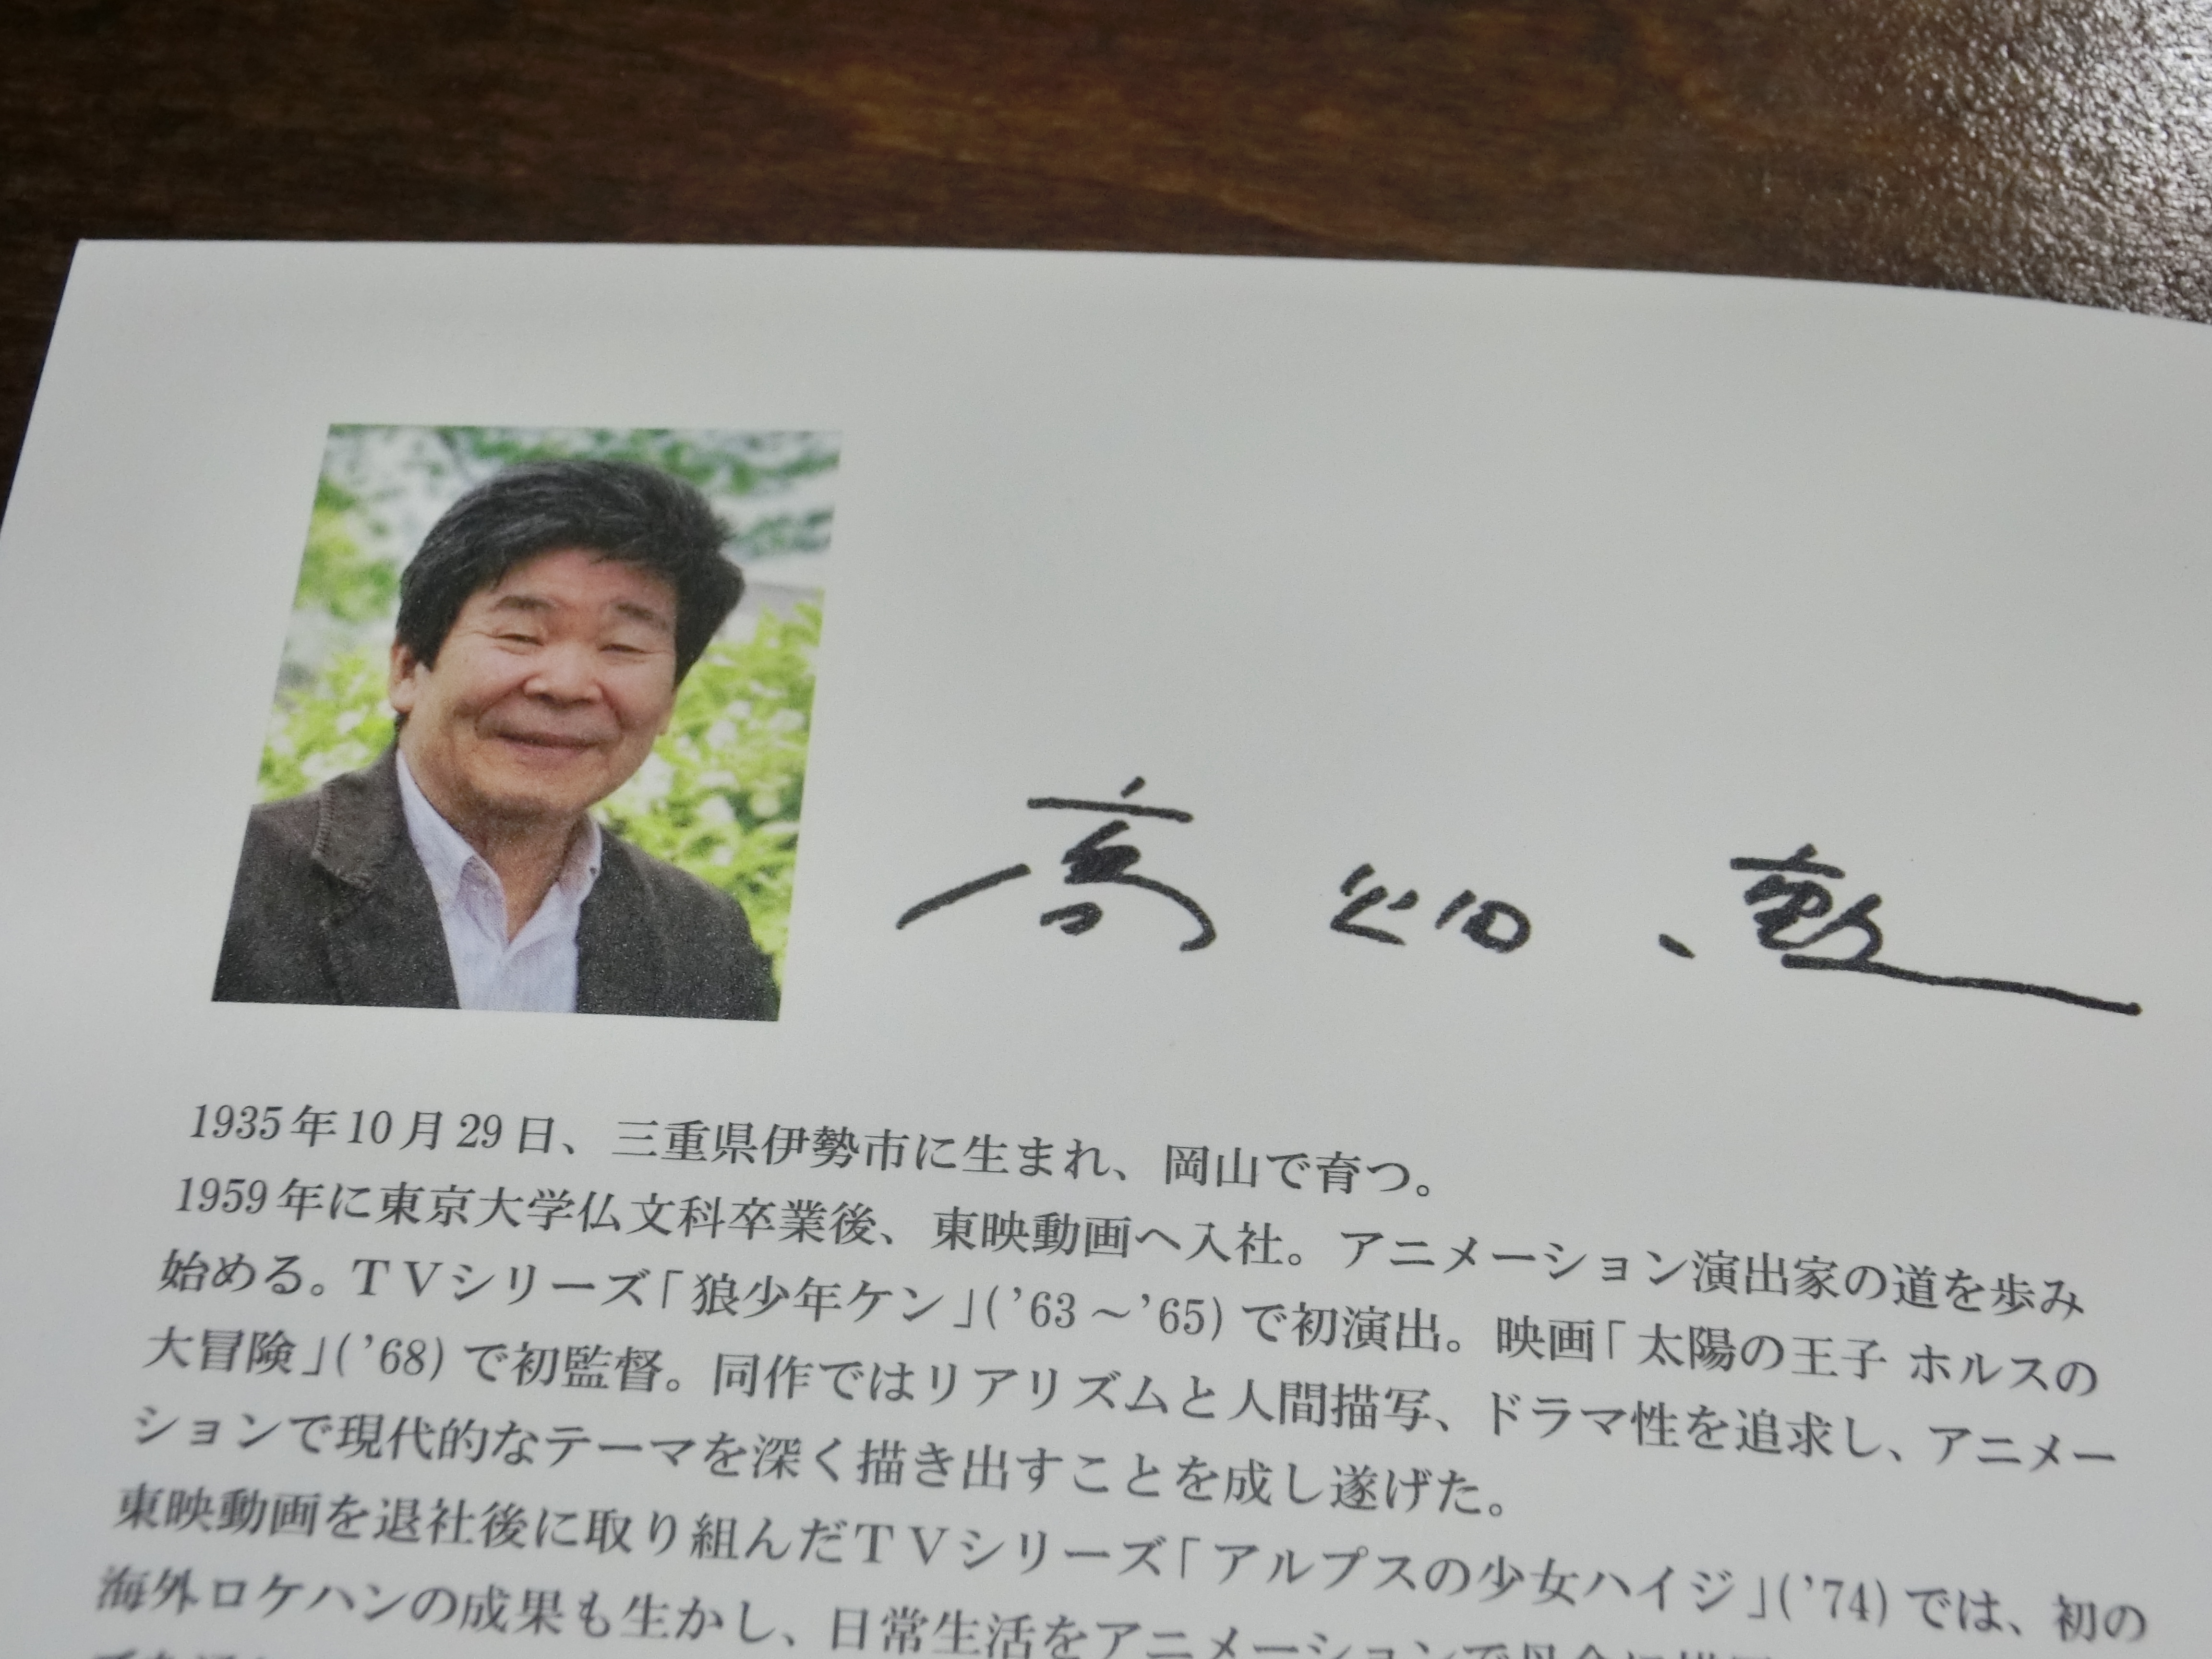 高畑 勲
1935年10月29日、三重県伊勢市に生まれ、岡山で育つ。
1959年に東京大学仏文科卒業後、東映動画へ入社。アニメーション演出家の道を歩み
始める。TVシリーズ「狼少年ケン」('63～'65)で初演出。映画「太陽の王子 ホルスの
大冒険」('68)で初監督。同作ではリアリズムと人間描写、ドラマ性を追求し、アニメー
ションで現代的なテーマを深く描き出すことを成し遂げた。
東映動画を退社後に取り組んだTVシリーズ「アルプスの少女ハイジ」('74)では、初の
海外ロケハンの成果も生かし、日常生活をアニメーションで